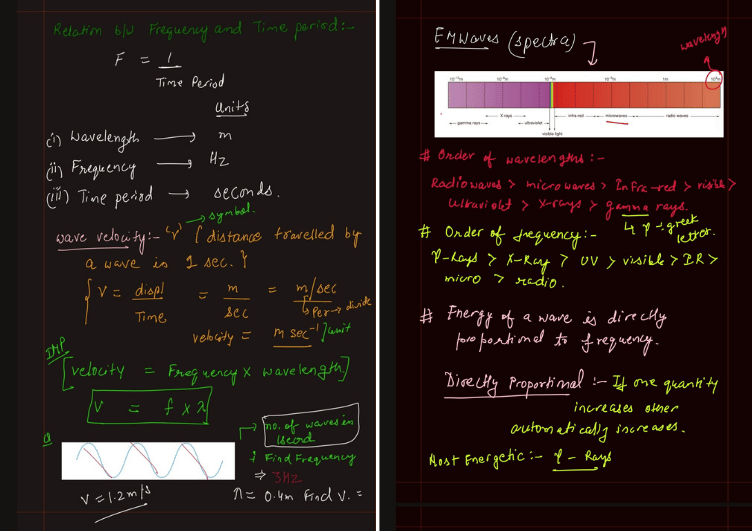 Relation b/w Frequency and Time period:-
F = 1
Time Period
Units
(i) Wavelength → m
(ii) Frequency → Hz
(iii) Time period → seconds.
→ symbol.
wave velocity:- 'v' { distance travelled by
a wave is 1 sec. }
{ V = displ = m = m/sec
Time sec
↳ Per → divide
velocity = m sec⁻¹ ] unit
IMP
[velocity = Frequency x wavelength]
V = f x λ
Q
no. of waves in
1 second
Find Frequency
⇒ 3Hz
V = 1.2 m/s
λ = 0.4m Find v. =
EMWaves (spectra)
wavelength
gamma rays
X rays
ultraviolet
visible light
infra-red
microwaves
radio waves
# Order of wavelengths :-
Radiowaves > microwaves > InFra-red > visible >
Ultraviolet > X-rays > gamma rays.
↳ γ → greek
letter.
# Order of frequency:-
γ-Rays > X-Ray > UV > visible > IR >
micro > radio.
# Energy of a wave is directly
proportional to frequency.
Directly Proportional :- If one quantity
increases other
automatically increases.
Most Energetic:- γ - Rays